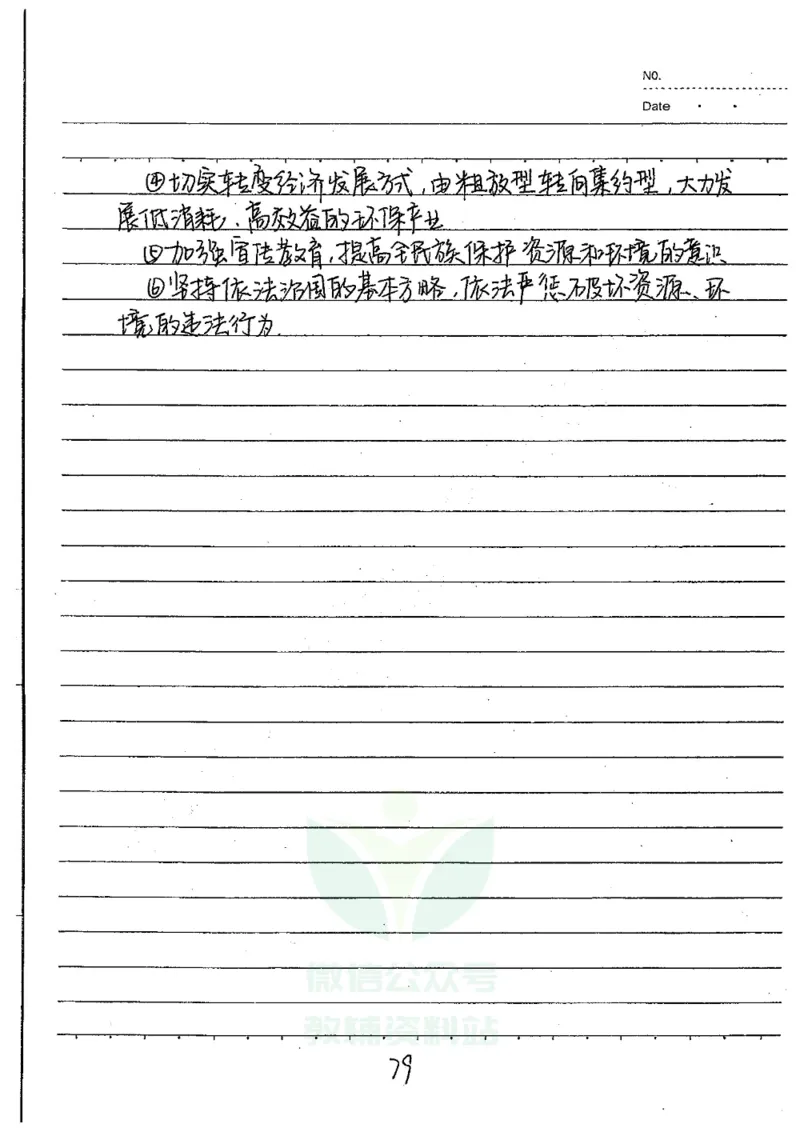 NO.
Date
④切实转变经济发展方式,由粗放型转向集约型,大力发
展低消耗、高效益的环保产业
⑤加强宣传教育,提高全民族保护资源和环境的意识
⑥坚持依法治国的基本方略,依法严惩破坏资源、环
境的违法行为.
微信公众号
教辅资料站
79